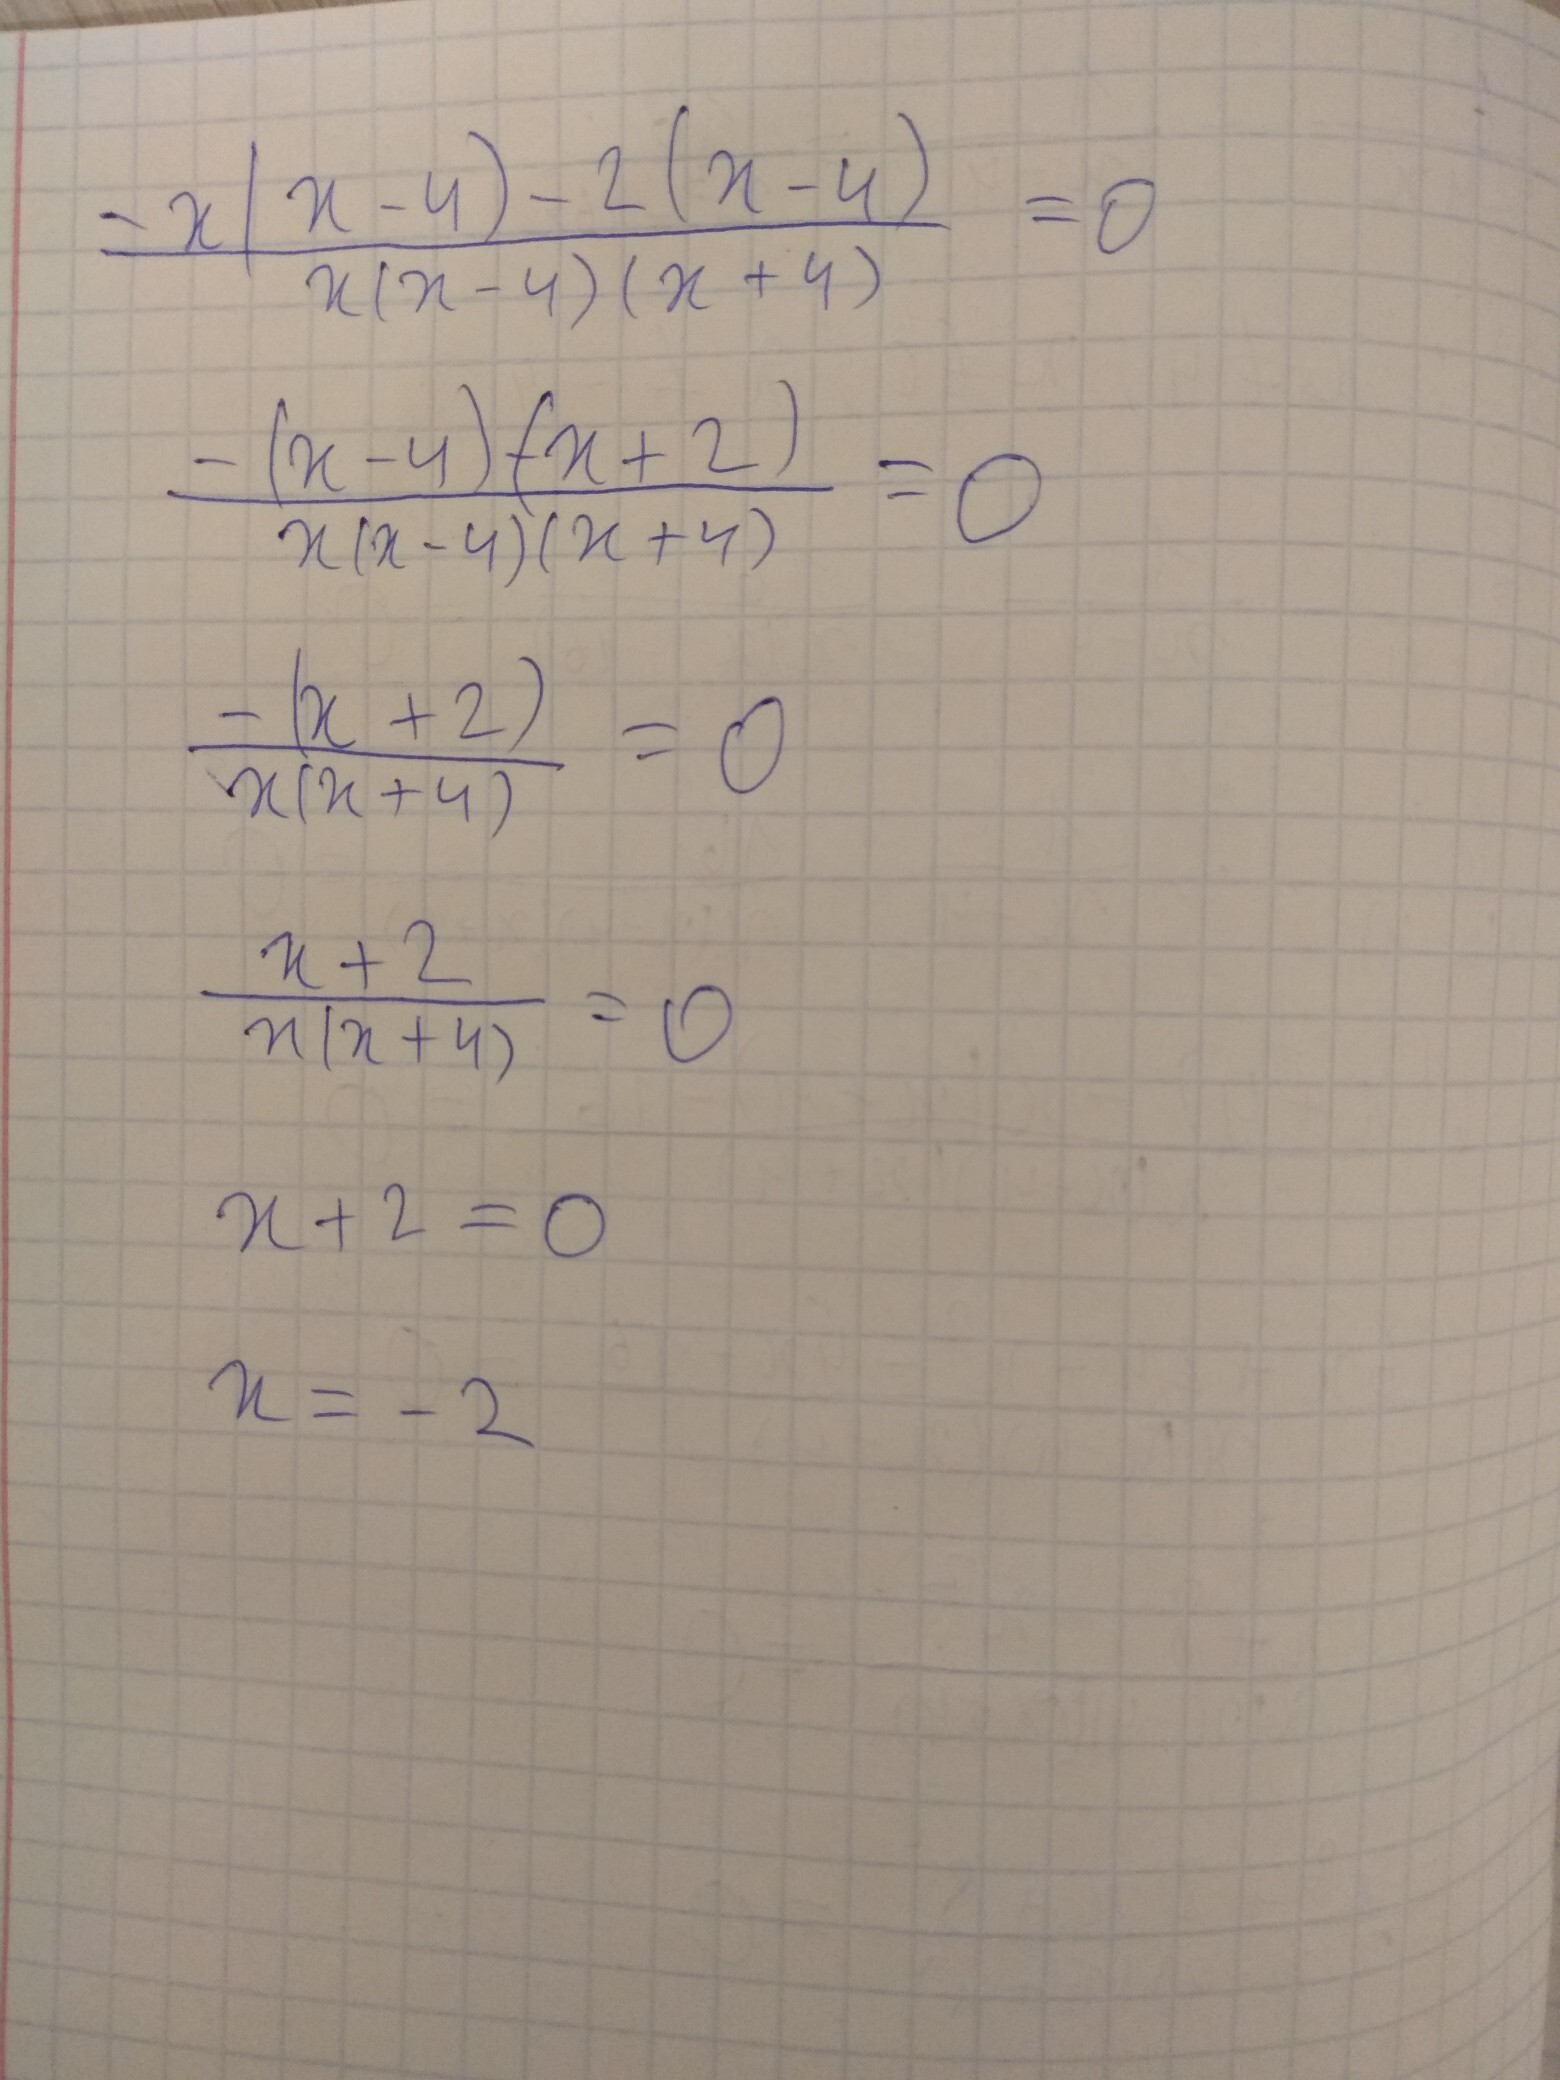 -x(x-4)-2(x-4) = 0
x(x-4)(x+4)
-(x-4)(x+2) = 0
x(x-4)(x+4)
-(x+2) = 0
x(x+4)
x+2 = 0
x(x+4)
x+2=0
x=-2